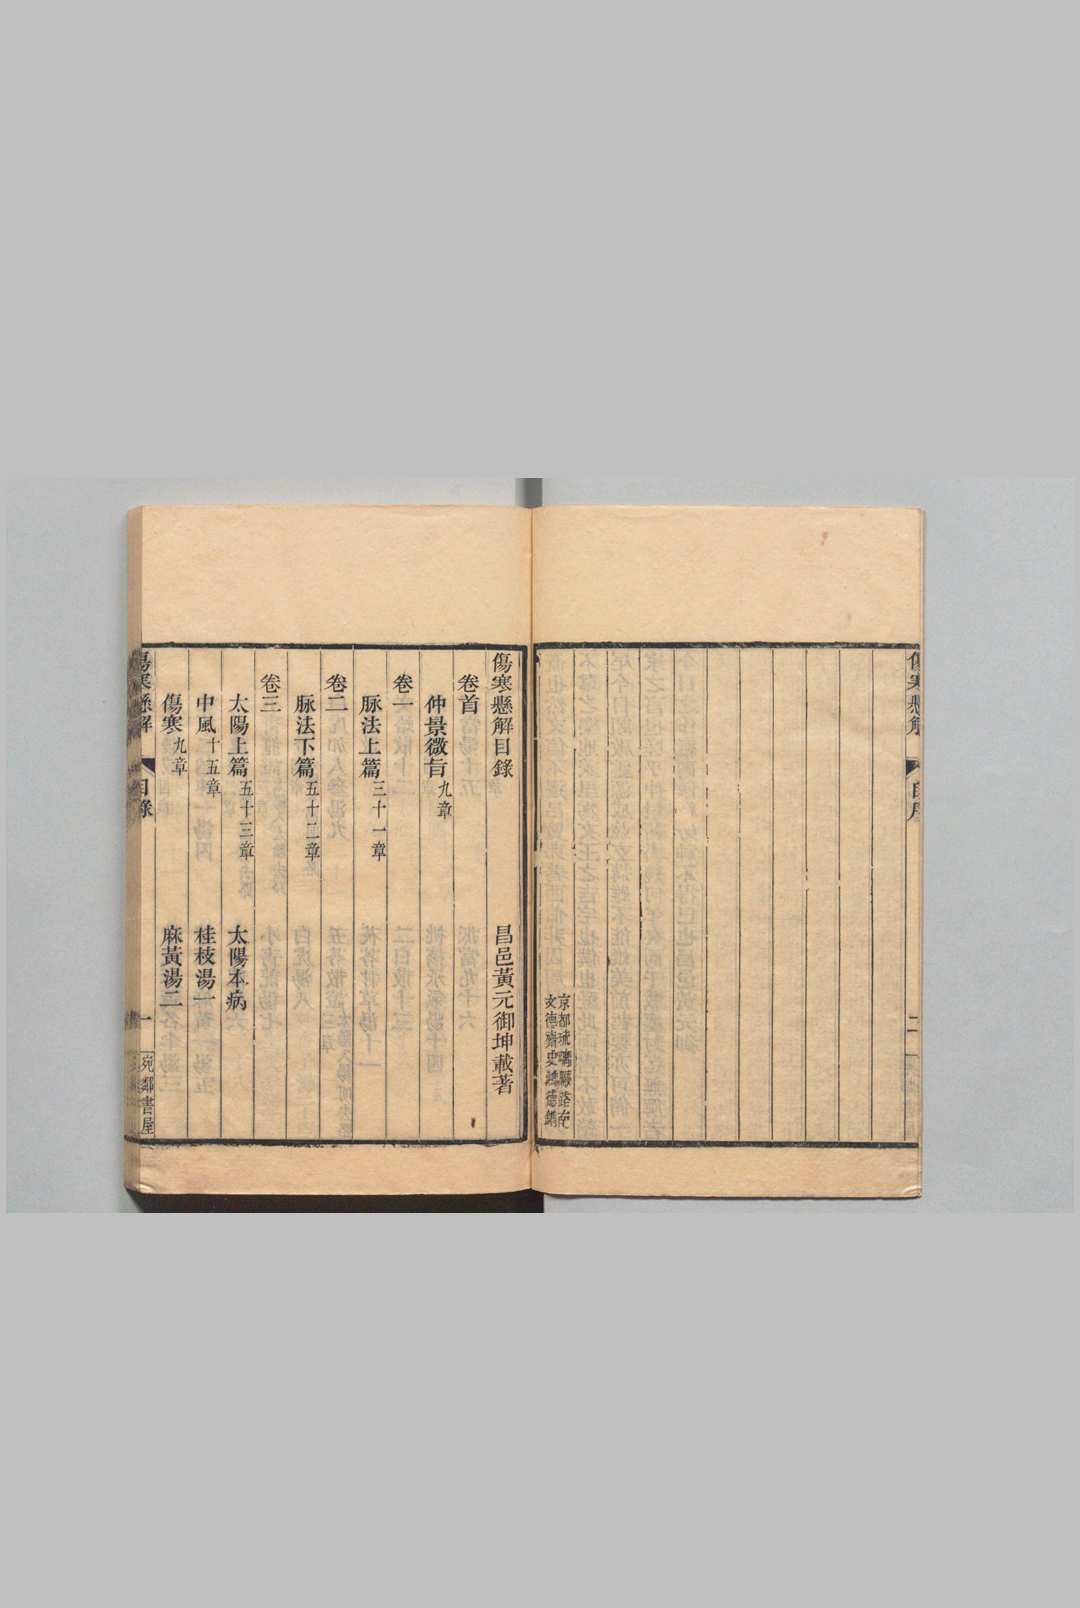 傷寒懸解
自序
二
京都琉璃廠路南
文德齋史鴻德鐫
傷寒懸解目錄
昌邑黃元御坤載著
卷首
仲景微旨九章
卷一
脉法上篇三十一章
卷二
脉法下篇五十二章
卷三
太陽上篇五十三章 太陽本病
中風十五章 桂枝湯一
傷寒九章 麻黃湯二
傷寒懸解
目錄
一
宛鄰書屋